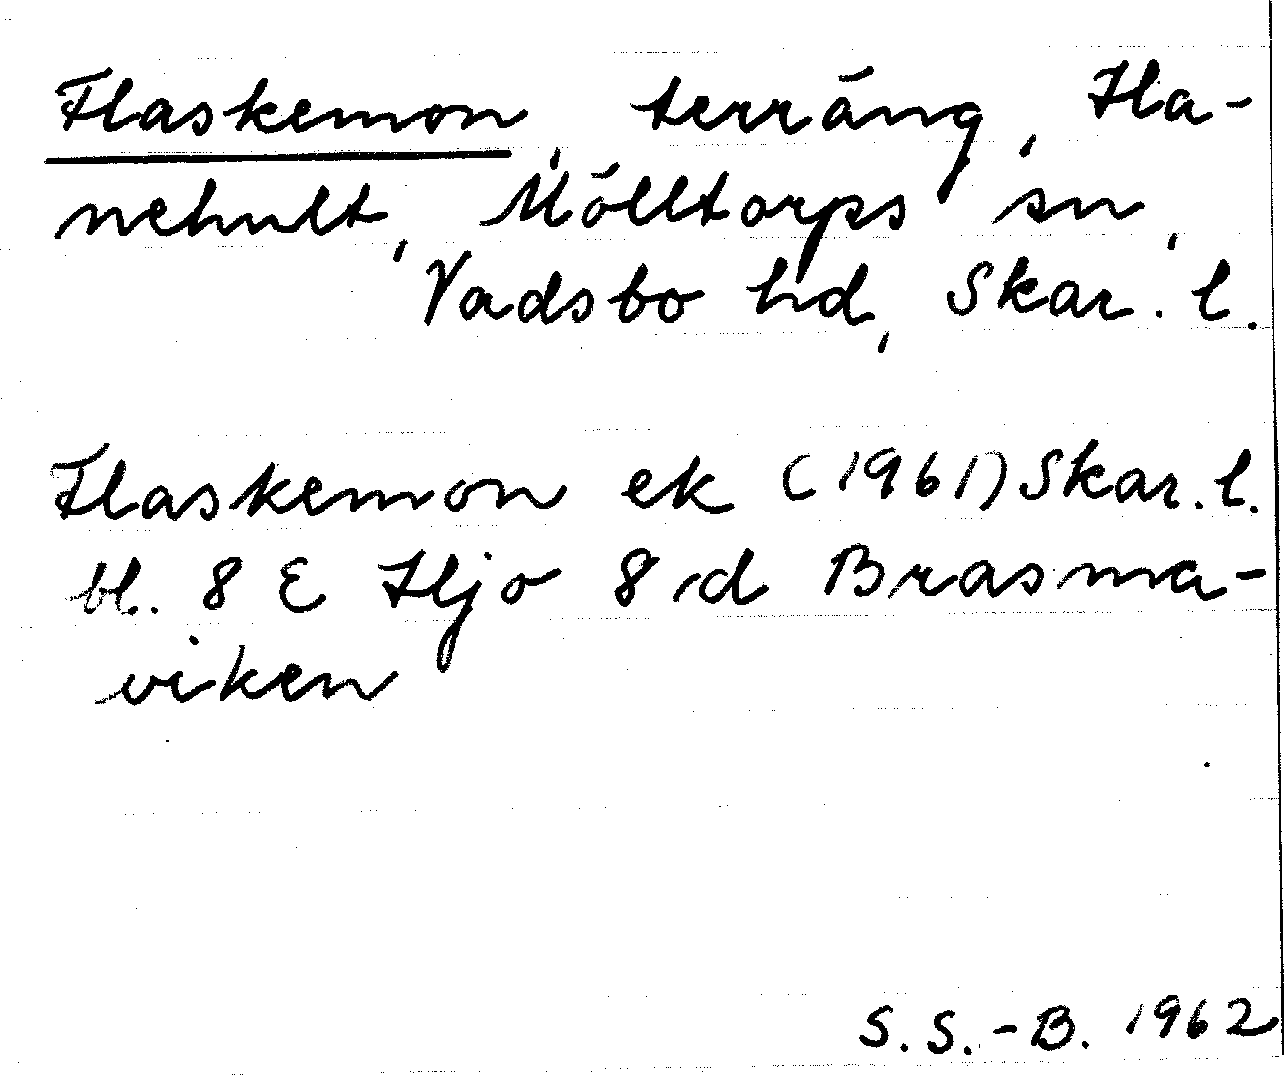 Flaskemon, terräng, Ha-
nehult, Mölltorps sn,
Vadsbo hd, Skar. l.
Flaskemon ek (1961) Skar. l.
bl. 8 E Hjo 8 d Brasma-
viken
S. S.-B. 1962